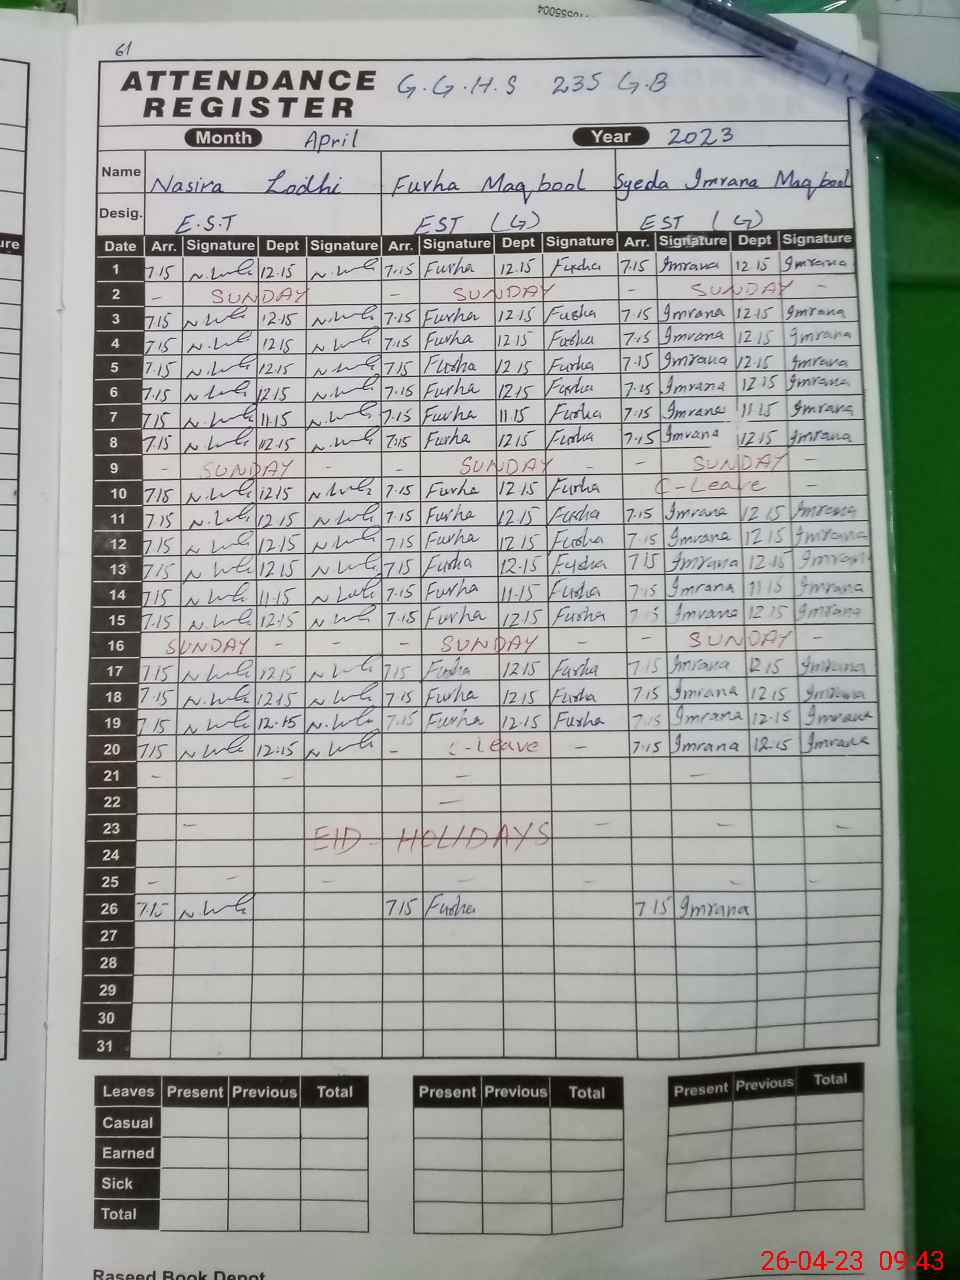 61
ATTENDANCE REGISTER G.G.H.S 235 G.B
Month April Year 2023
Name Nasira Lodhi Furha Maqbool Syeda Imrana Maqbool
Desig. E.S.T EST (G) EST (G)
Date Arr. Signature Dept Signature Arr. Signature Dept Signature Arr. Signature Dept Signature
1 7.15 12.15 7.15 Furha 12.15 Furha 7.15 Imrana 12.15 Imrana
2 - SUNDAY - SUNDAY - SUNDAY -
3 7.15 12.15 7.15 Furha 12.15 Furha 7.15 Imrana 12.15 Imrana
4 7.15 12.15 7.15 Furha 12.15 Furha 7.15 Imrana 12.15 Imrana
5 7.15 12.15 7.15 Furha 12.15 Furha 7.15 Imrana 12.15 Imrana
6 7.15 12.15 7.15 Furha 12.15 Furha 7.15 Imrana 12.15 Imrana
7 7.15 11.15 7.15 Furha 11.15 Furha 7.15 Imrana 11.15 Imrana
8 7.15 12.15 7.15 Furha 12.15 Furha 7.15 Imrana 12.15 Imrana
9 - SUNDAY - - SUNDAY - - SUNDAY -
10 7.15 12.15 7.15 Furha 12.15 Furha C-Leave -
11 7.15 12.15 7.15 Furha 12.15 Furha 7.15 Imrana 12.15 Imrana
12 7.15 12.15 7.15 Furha 12.15 Furha 7.15 Imrana 12.15 Imrana
13 7.15 12.15 7.15 Furha 12.15 Furha 7.15 Imrana 12.15 Imrana
14 7.15 11.15 7.15 Furha 11.15 Furha 7.15 Imrana 11.15 Imrana
15 7.15 12.15 7.15 Furha 12.15 Furha 7.15 Imrana 12.15 Imrana
16 SUNDAY - - - SUNDAY - - SUNDAY -
17 7.15 12.15 7.15 Furha 12.15 Furha 7.15 Imrana 12.15 Imrana
18 7.15 12.15 7.15 Furha 12.15 Furha 7.15 Imrana 12.15 Imrana
19 7.15 12.15 7.15 Furha 12.15 Furha 7.15 Imrana 12.15 Imrana
20 7.15 12.15 - C-Leave - 7.15 Imrana 12.15 Imrana
21 - - - -
22 -
23 - EID - HOLIDAYS - - -
24
25 - - - - - -
26 7.15 7.15 Furha 7.15 Imrana
27
28
29
30
31
Leaves Present Previous Total Present Previous Total Present Previous Total
Casual
Earned
Sick
Total
Raseed Book Depot
26-04-23 09:43